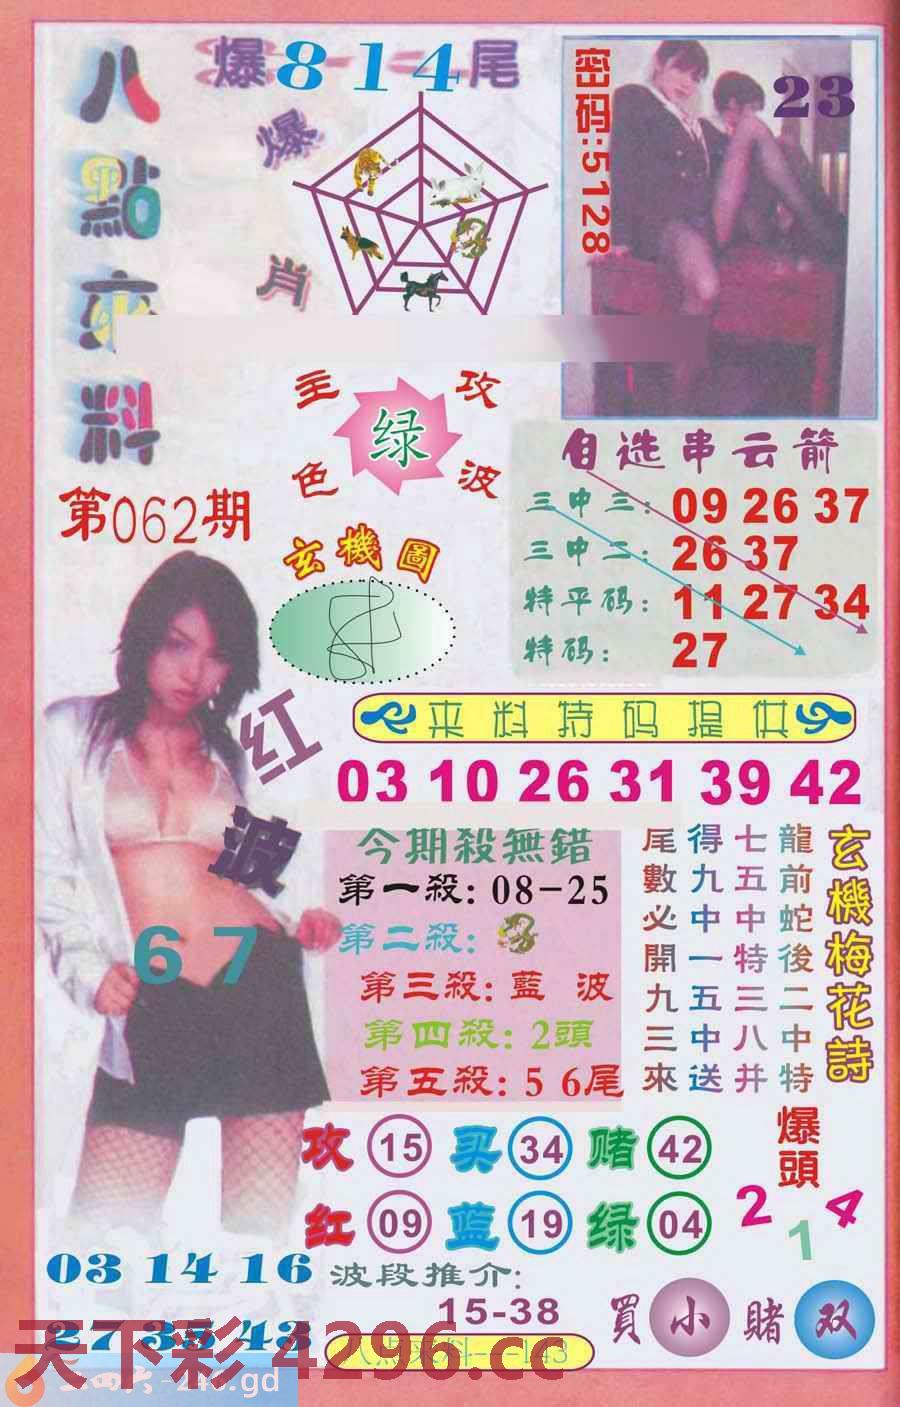 八點來料
爆8-1-4尾
爆肖
密码:5128
23
主攻
绿
色波
第062期
玄機圖
自选串云箭
三中三: 09 26 37
三中二: 26 37
特平码: 11 27 34
特码: 27
红波
67
来料特码提供
03 10 26 31 39 42
今期殺無錯
第一殺: 08-25
第二殺:
第三殺: 藍 波
第四殺: 2頭
第五殺: 5 6尾
玄機梅花詩
龍前蛇後二中特
七五中特三八并
得九中一五中送
尾數必開九三來
攻 15 买 34 赌 42
红 09 蓝 19 绿 04
爆頭
2 1 4
03 14 16
波段推介:
15-38
買 小 賭 双
天下彩 4296.cc
-246.gd